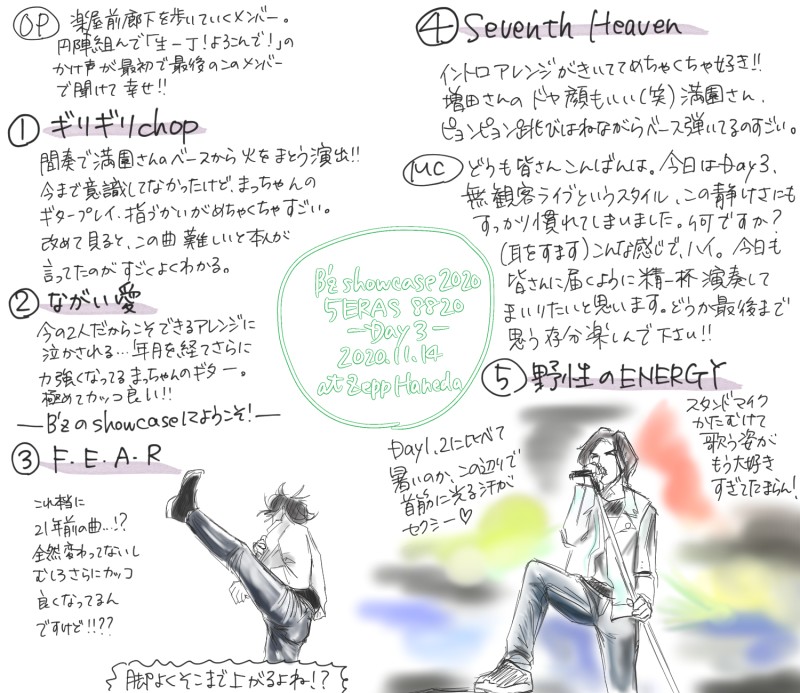 OP 楽屋前廊下を歩いていくメンバー。
円陣組んで「生一丁!よろこんで!」の
かけ声が最初で最後のこのメンバー
で聞けて幸せ!!
① ギリギリchop
間奏で満園さんのベースから火をまとう演出!!
今まで意識してなかったけど、まっちゃんの
ギタープレイ、指づかいがめちゃくちゃすごい。
改めて見ると、この曲難しいと本人が
言ってたのがすごくよくわかる。
② ながい愛
今の2人だからこそできるアレンジに
泣かされる…年月を経てさらに
力強くなってるまっちゃんのギター。
極めてカッコ良い!!
—B'zのshowcaseにようこそ!—
③ F・E・A・R
これ本当に
21年前の曲…!?
全然変わってないし
むしろさらにカッコ
良くなってるん
ですけど!!??
脚よくそこまで上がるよね!?
B'z showcase 2020
5 ERAS 8820
—Day 3—
2020.11.14
at Zepp Haneda
④ Seventh Heaven
イントロアレンジがきいててめちゃくちゃ好き!!
増田さんのドヤ顔もいい(笑)満園さん、
ピョンピョン跳びはねながらベース弾いてるのすごい。
MC どうも皆さんこんばんは。今日はDay3、
無観客ライブというスタイル、この静けさにも
すっかり慣れてしまいました。何ですか?
(耳をすます)こんな感じで、ハイ。今日も
皆さんに届くように精一杯演奏して
まいりたいと思います。どうか最後まで
思う存分楽しんで下さい!!
⑤ 野性のENERGY
Day1、2に比べて
暑いのか、この辺りで
首筋に光る汗が
セクシー♡
スタンドマイク
かたむけて
歌う姿が
もう大好き
すぎてたまらん!